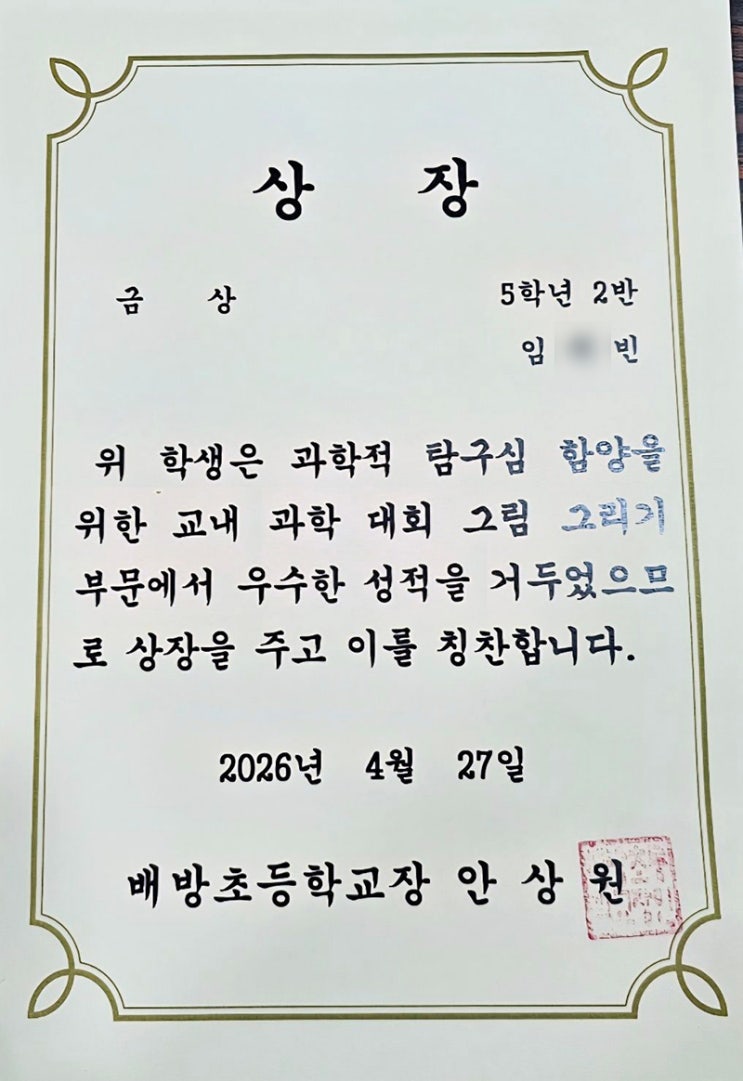 상 장
금 상
5학년 2반
임 빈
위 학생은 과학적 탐구심 함양을
위한 교내 과학 대회 그림 그리기
부문에서 우수한 성적을 거두었으므
로 상장을 주고 이를 칭찬합니다.
2026년 4월 27일
배방초등학교장 안 상 원